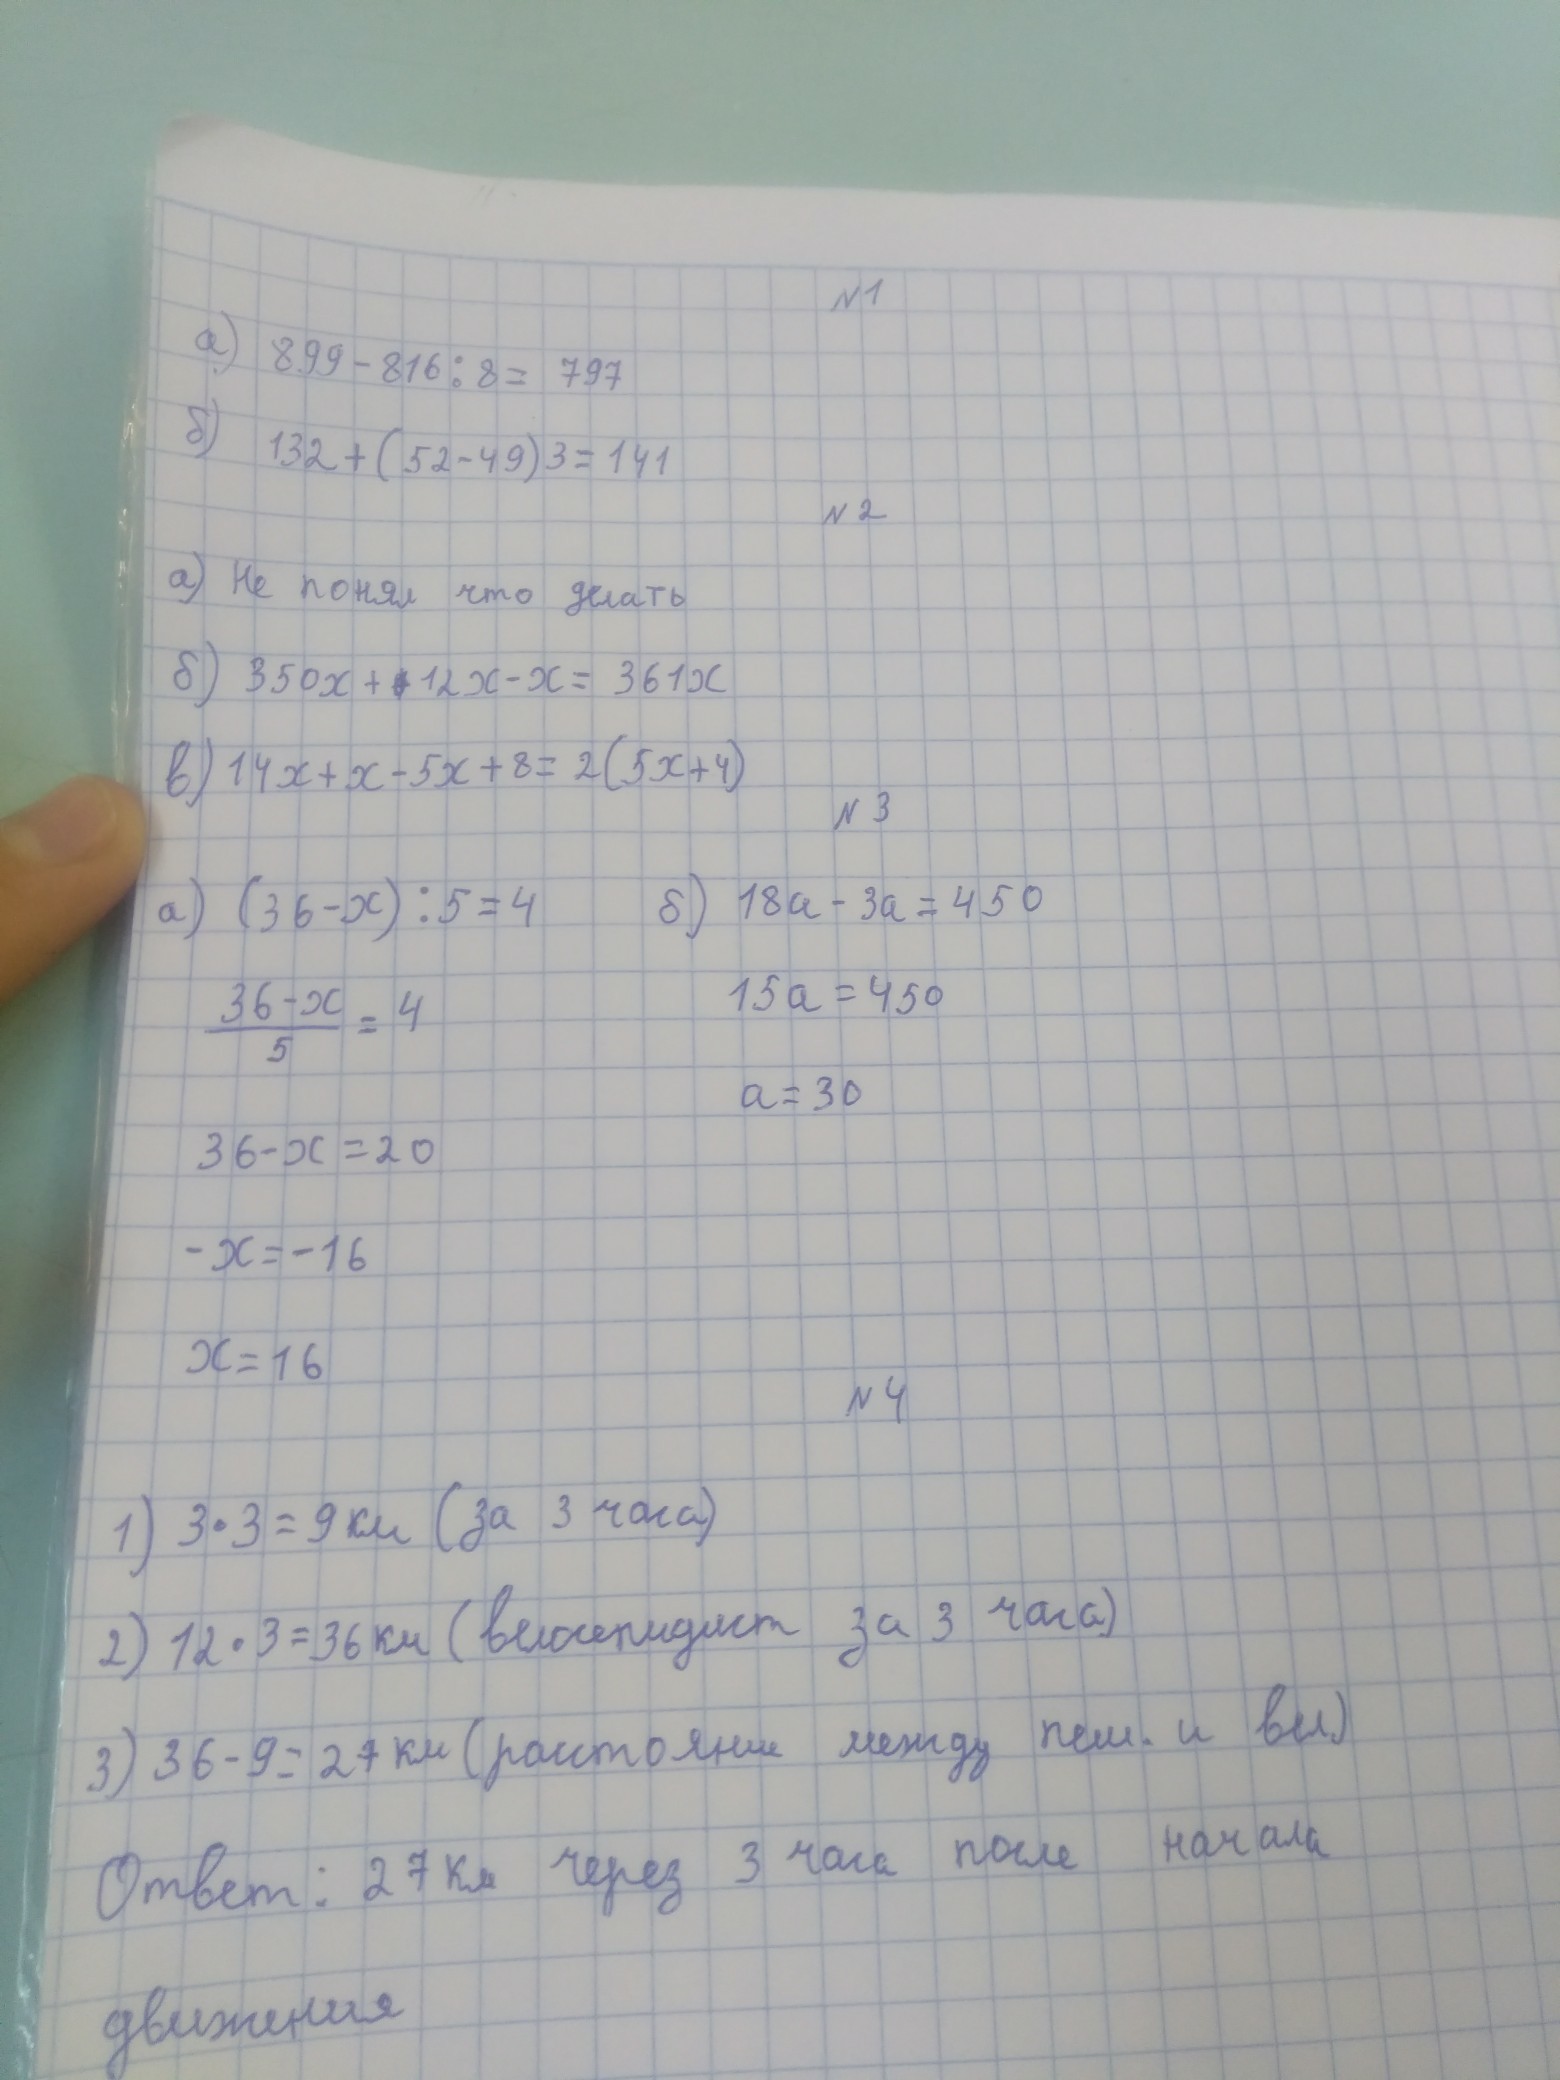 №1
а) 899-816:8= 797
б) 132+(52-49)3=141
№2
а) Не понял что делать
б) 350х+12х-х= 361х
в) 14х+х-5х+8= 2(5х+4)
№3
а) (36-х):5=4 б) 18а-3а=450
36-х/5 = 4 15а=450
а=30
36-х=20
-х=-16
х=16
№4
1) 3·3=9км (за 3 часа)
2) 12·3=36км (велосепидист за 3 часа)
3) 36-9=27км (расстояние между пеш. и вел.)
Ответ: 27км через 3 часа после начала
движения